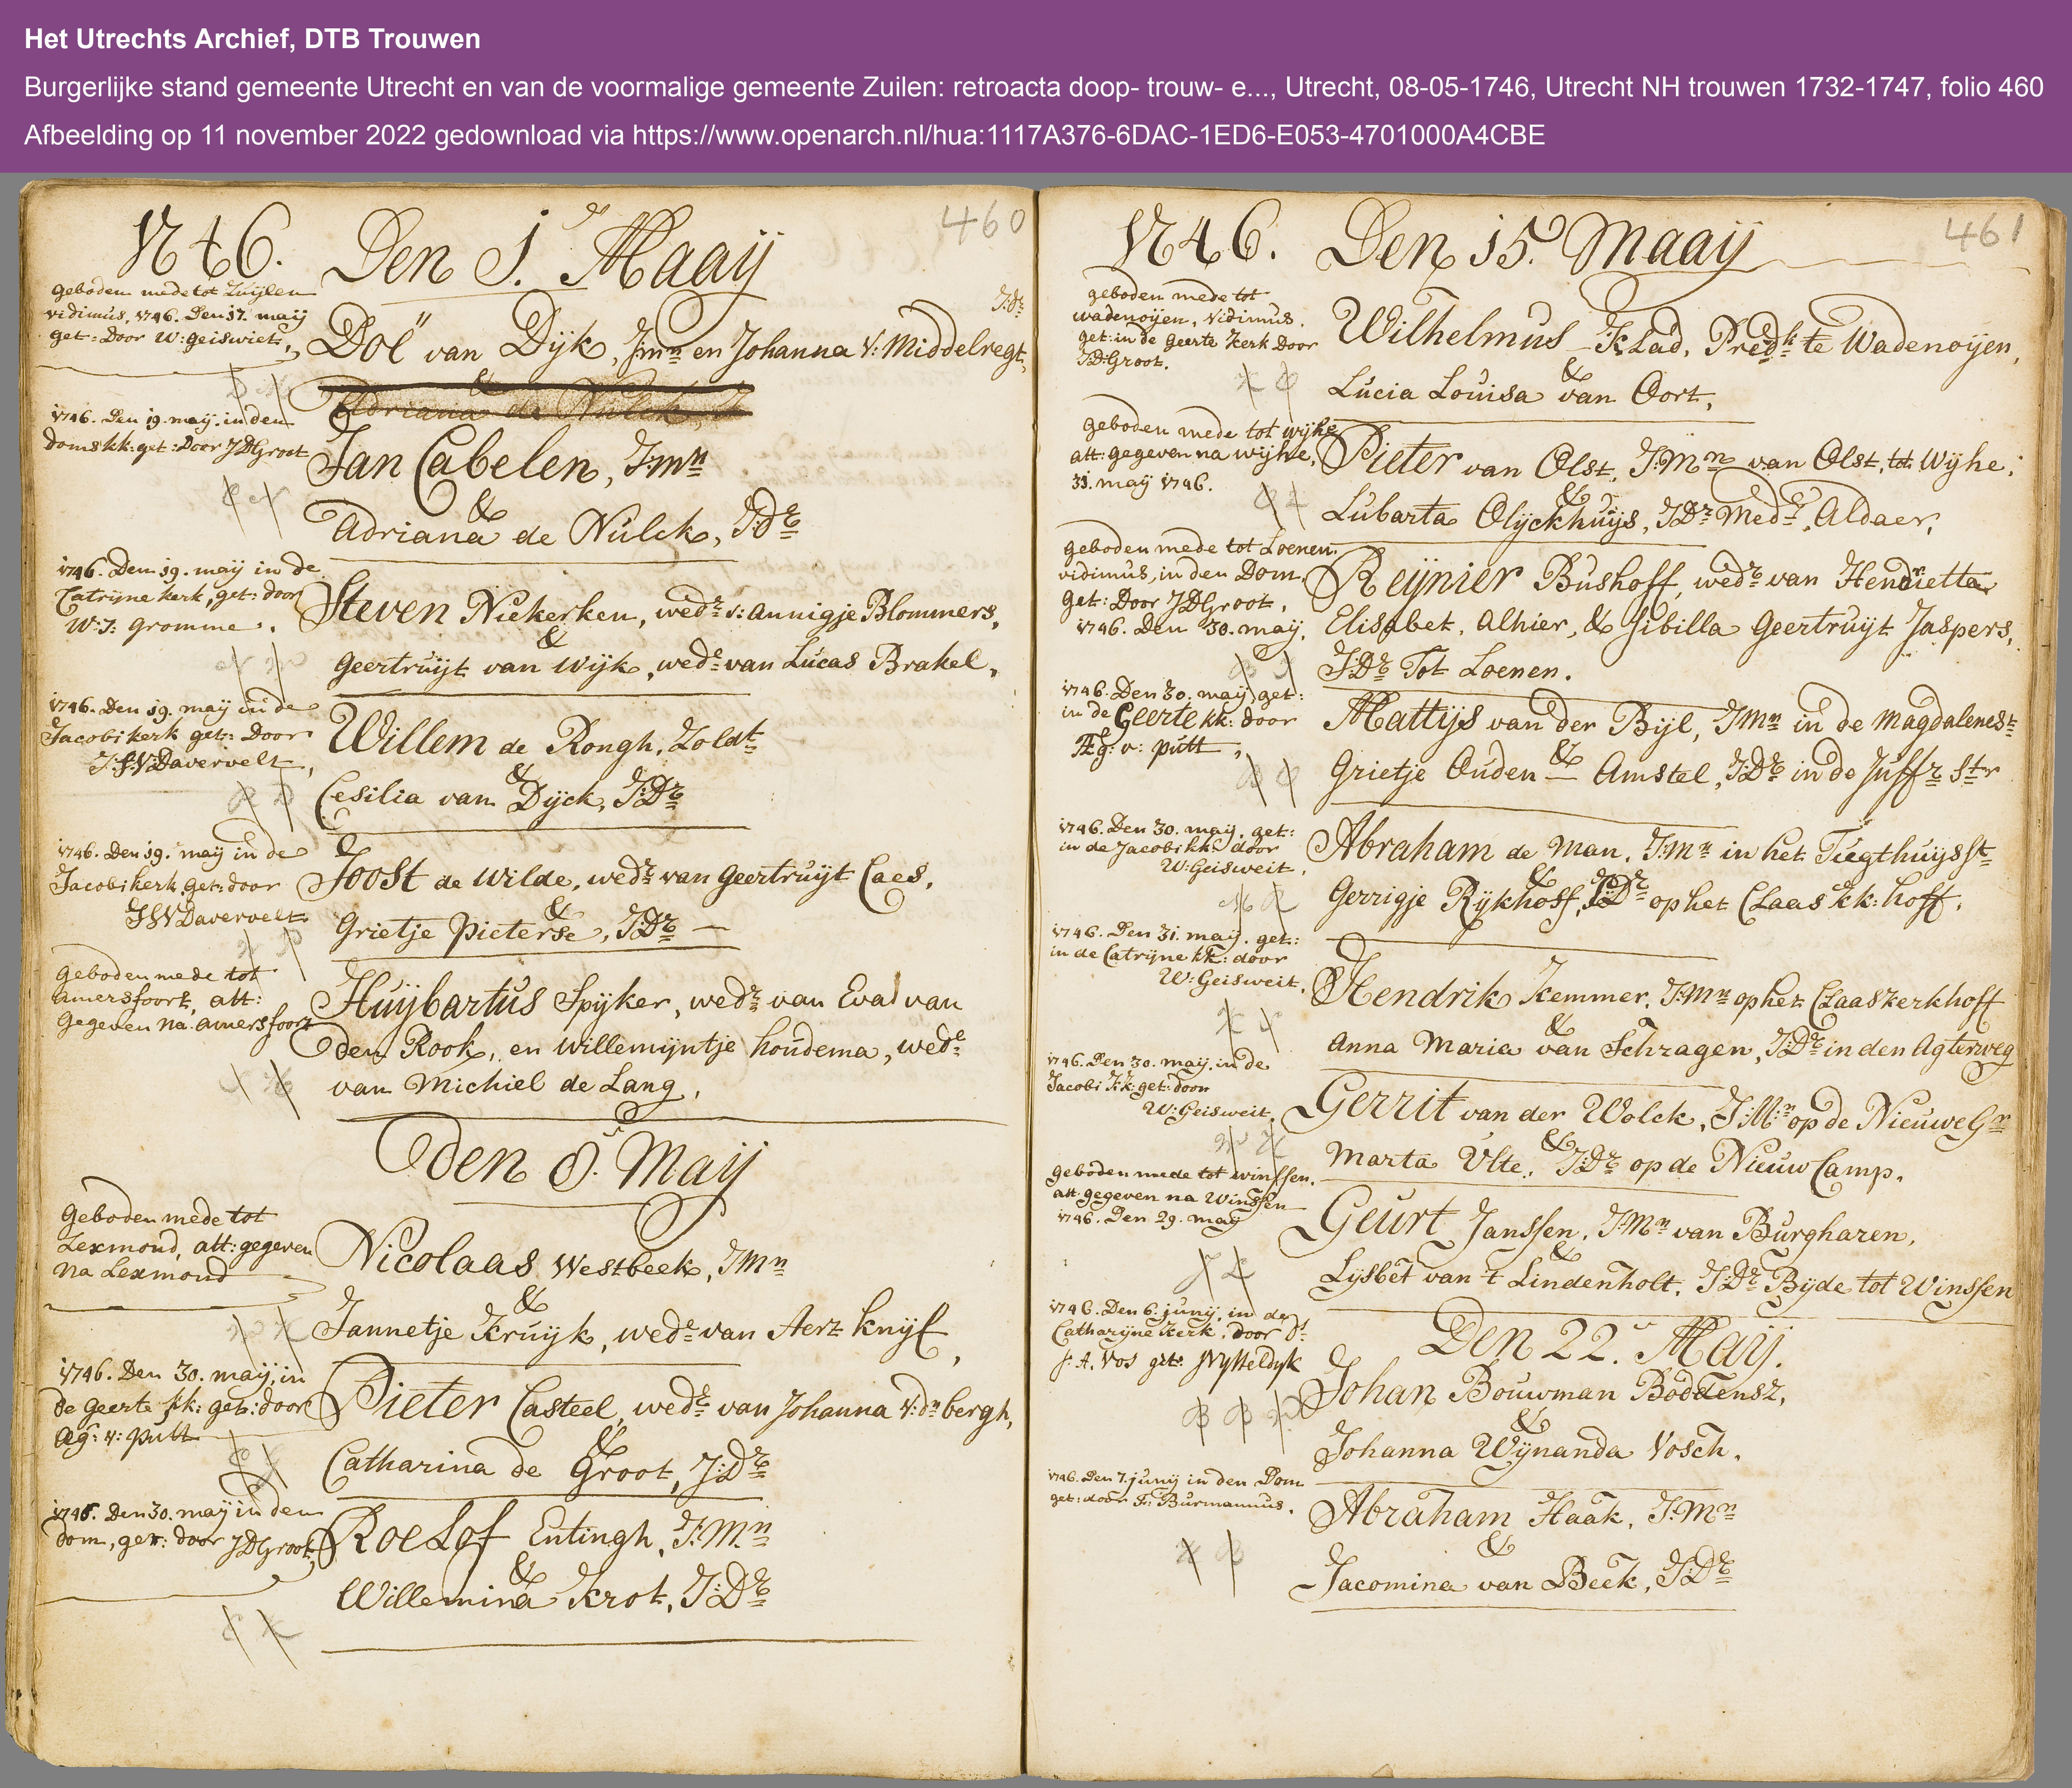 Het Utrechts Archief, DTB Trouwen
Burgerlijke stand gemeente Utrecht en van de voormalige gemeente Zuilen: retroacta doop- trouw- e..., Utrecht, 08-05-1746, Utrecht NH trouwen 1732-1747, folio 460
Afbeelding op 11 november 2022 gedownload via https://www.openarch.nl/hua:1117A376-6DAC-1ED6-E053-4701000A4CBE
460
1746. Den 1. Maaij
geboden mede tot Zuijlen
vidimus, 1746. Den 17. maij
get: Door W: geisweit,
J:Dr
Doe van Dijk, J:mn en Johanna V: Middelregt,
&
Adriana de Nulck, J
1746. Den 19. maij. in den
doms kk: get: Door JDGroot
Jan Cabelen, J:mn
&
Adriana de Nulck, J:Dr
1746. Den 19. maij in de
Catrijne kerk, get: door
W: J: gromme.
Steven Niekerken, wedr v: Annigje Blommers,
&
Geertruijt van Wijk, wede van Lucas Brakel,
1746. Den 19. maij in de
Jacobi kerk get: Door
J:S:V:Davervelt,
Willem de Rongh, Zoldt
&
Cesilia van Dijck, J:Dr
1746. Den 19. maij in de
Jacobi kerk, get: door
JSVDavervelt
Joost de Wilde, wedr van Geertruijt Caes,
&
Grietje Pieterse, J:Dr
geboden mede tot
amersfoort, att:
gegeven na amersfoort
Huijbartus Spijker, wedr van Eva van
den Rook, en Willemijntje houdema, wede
van Michiel de Lang,
den 8. Maij
Geboden mede tot
Lexmond, att: gegeven
na Lexmond
Nicolaas Westbeek, J:mn
&
Jannetje Kruijk, wede van Aert Knijf,
1746. Den 30. maij, in
de Geerte kk: get: door
Æg: v: putt
Pieter Casteel, wedr van Johanna V: dn bergh,
&
Catharina de Groot, J:Dr
1746. Den 30. maij in den
dom, get: door JDGroot,
Roelof Entingh, J:Mn
&
Willemina Krot, J:Dr
461
1746. Den 15. Maaij
geboden mede tot
wadenoijen, vidimus.
get: in de geerte kerk Door
JD:Groot.
Wilhelmus Klad, Predkt te Wadenoijen,
&
Lucia Louisa van Oort,
geboden mede tot wijhe
att: gegeven na wijhe,
31. maij 1746.
Pieter van Olst, J:Mn van Olst, tot Wijhe;
&
Lubarta Olijckhuijs, J:Dr Mede, Aldaer,
geboden mede tot Loenen.
vidimus, in den Dom,
get: Door JDGroot,
1746. Den 30. maij,
Reijnier Bushoff, wedr van Hendrietta
Elisabet, Alhier, & Sibilla Geertruijt Jaspers,
J:Dr Tot Loenen.
1746. Den 30. maij get:
in de Geerte kk: door
Æg: v: putt,
Mattijs van der Bijl, J:Mn in de Magdalenest
&
Grietje Ouden Amstel, J:Dr in de Juffr Str
1746. Den 30. maij. get:
in de Jacobi kk: door
W: Geisweit,
Abraham de Man, J:Mn in het Tugthuijs St
&
Gerrigje Rijkhoff, J:Dr op het Claas kk: hoff.
1746. Den 31. maij. get:
in de Catrijne kk: door
W: Geisweit,
Hendrik Kemmer, J:Mn op het Claaskerkhoff
&
Anna Maria van Schragen, J:Dr in den Agterweg
1746. Den 30. maij, in de
Jacobi kk: get: door
W: Geisweit,
Gerrit van der Wolck, J:Mn op de Nieuwe Gn
&
Marta Ulte, J:Dr op de Nieuw Camp.
geboden mede tot winssen.
att. gegeven na Winssen
1746. Den 29. maij
Geurt Janssen, J:Mn van Burgharen,
&
Lijsbet van 't Lindenholt, J:Dr Bijde tot Winssen
Den 22. Maij.
1746. Den 6. junij, in de
Catharijne kerk, door Ds
J: A. Vos get:
Johan Bouwman Boddensz,
&
Johanna Wijnanda Vosch.
1746. Den 7. junij in den Dom
get: door Fr: Burmannus.
Abraham Haak, J:Mn
&
Jacomina van Beek, J:Dr